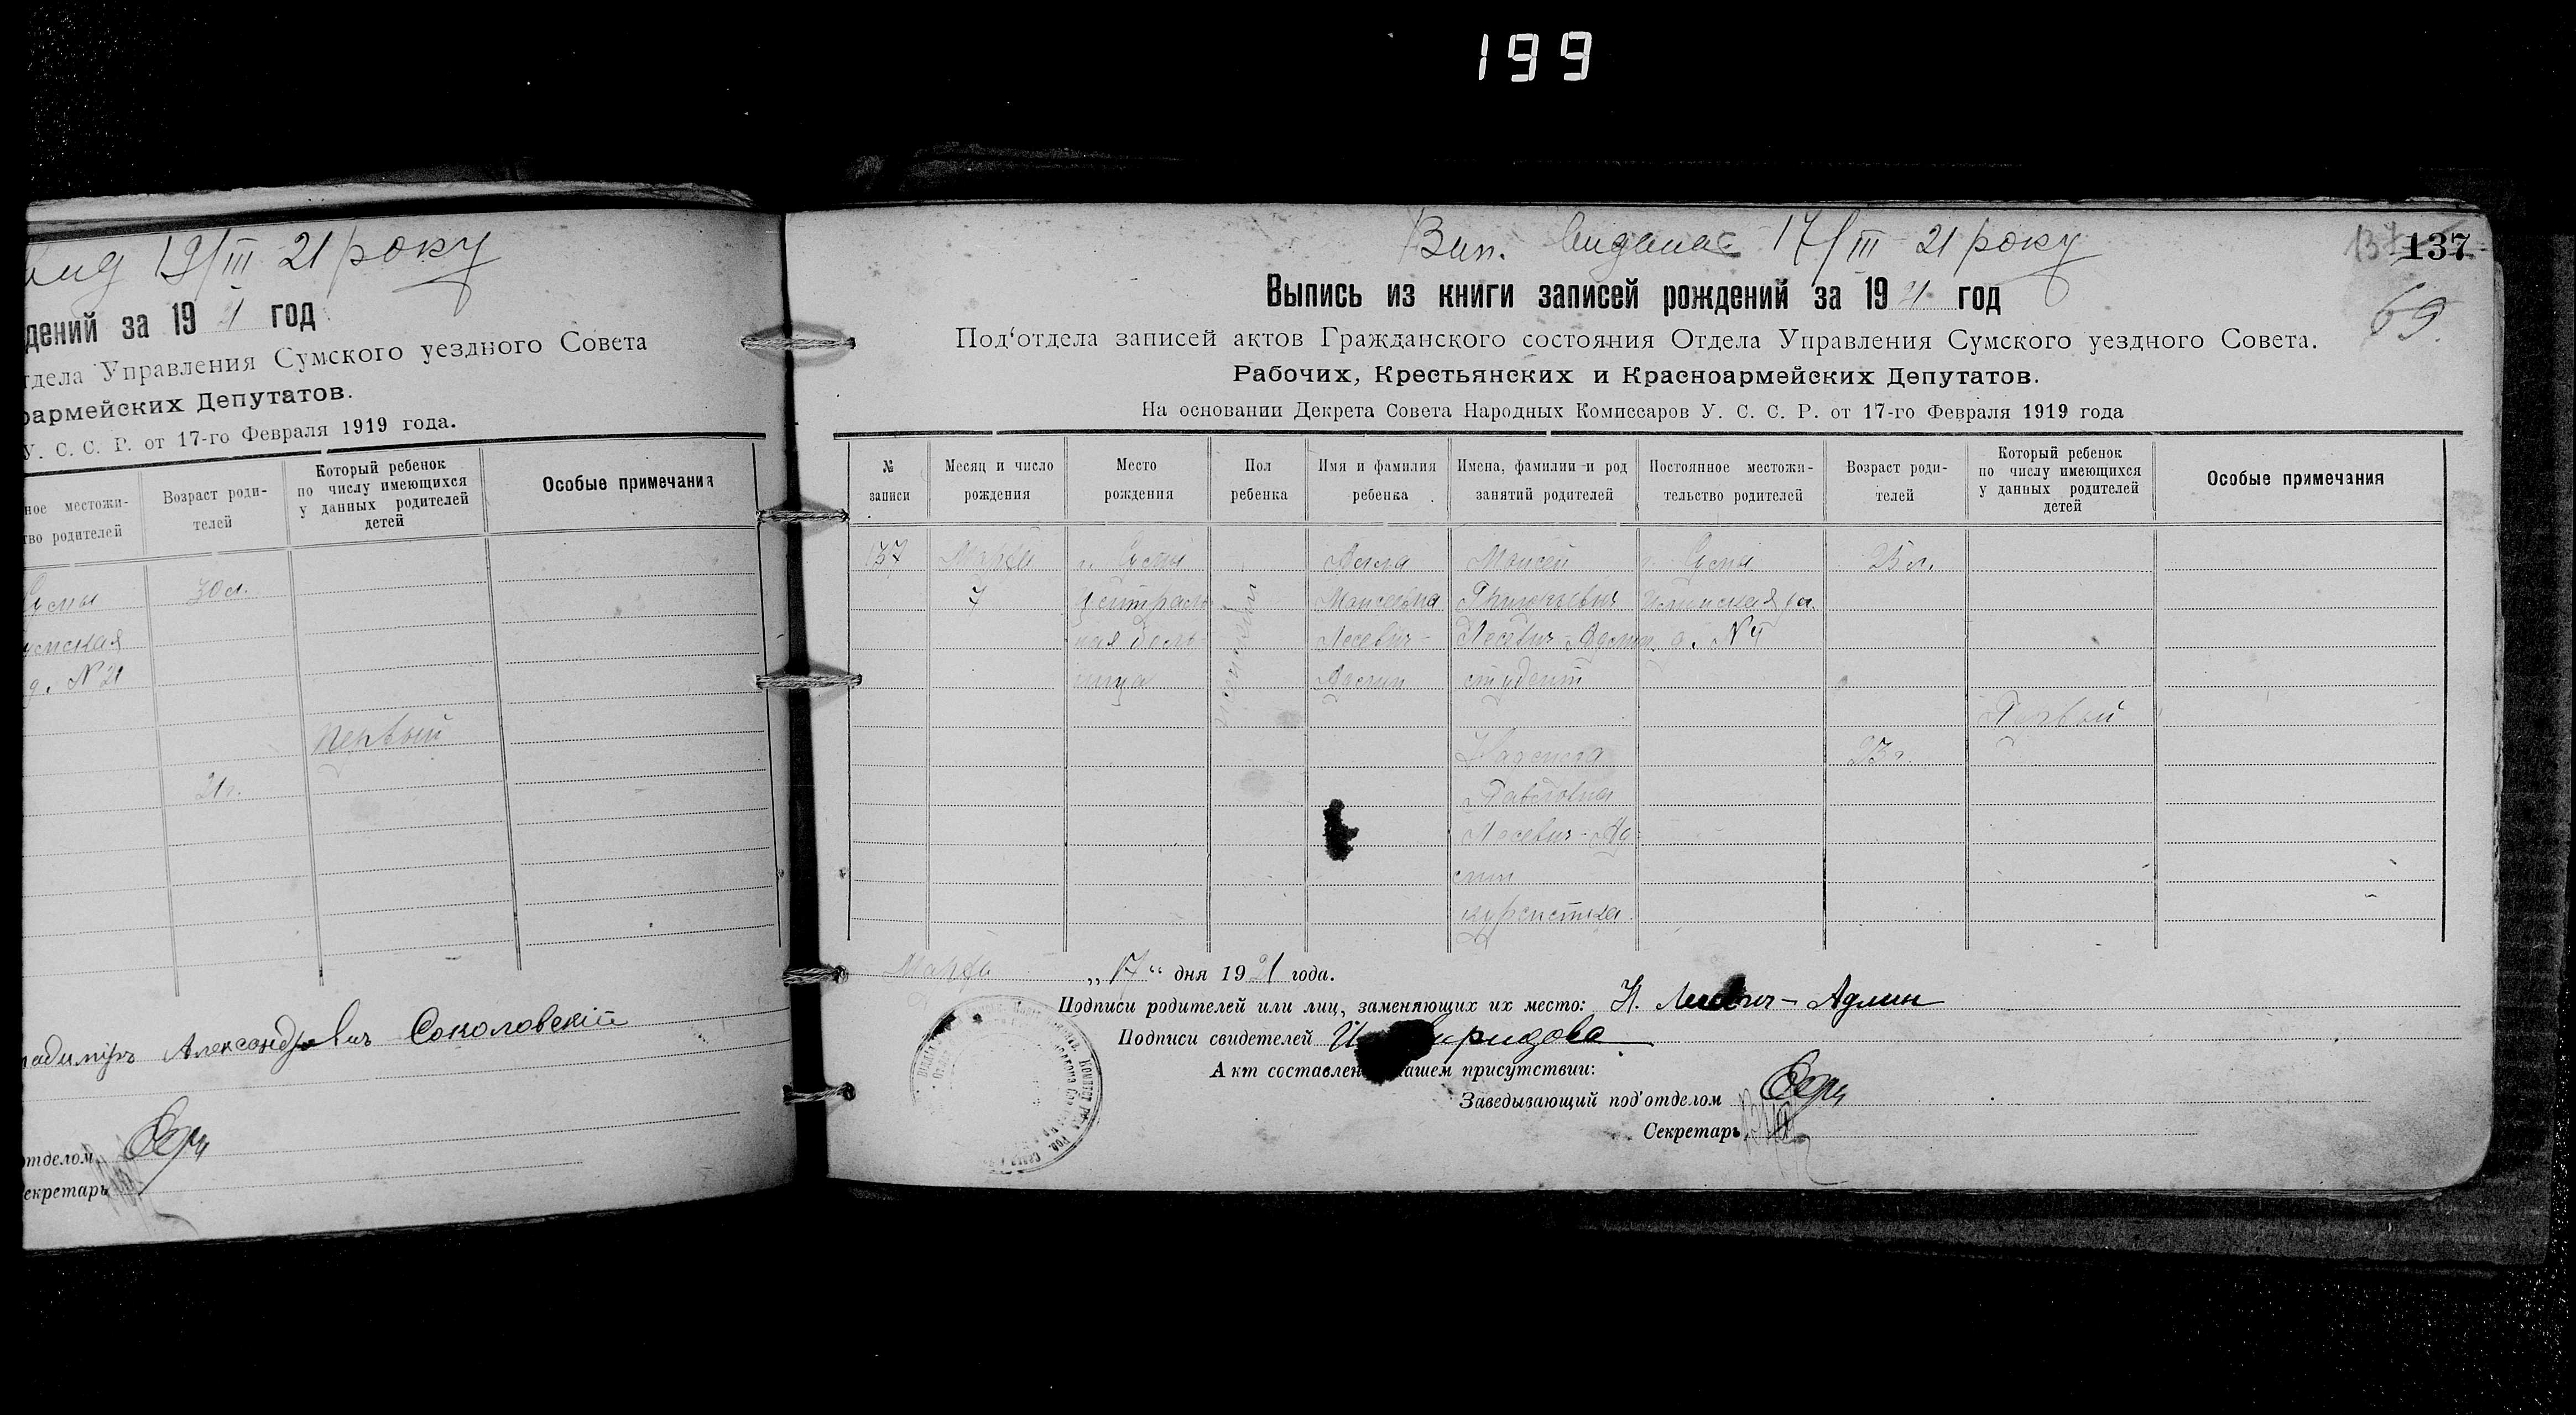 199
19/III 21 року
дений за 19 21 год
тдела Управления Сумского уездного Совета
оармейских Депутатов.
У. С. С. Р. от 17-го Февраля 1919 года.
ное местожи-
тво родителей
Возраст роди-
телей
Который ребенок
по числу имеющихся
у данных родителей
детей
Особые примечания
Сумы
30 л.
умская
д. № 21
первый
21 г.
Александровичъ Соколовскій
отделом
екретарь
Вип. видана 17/III 21 року
137 137
69
Выпись из книги записей рождений за 19 21 год
Под‘отдела записей актов Гражданского состояния Отдела Управления Сумского уездного Совета.
Рабочих, Крестьянских и Красноармейских Депутатов.
На основании Декрета Совета Народных Комиссаров У. С. С. Р. от 17-го Февраля 1919 года
№
записи
Месяц и число
рождения
Место
рождения
Пол
ребенка
Имя и фамилия
ребенка
Имена, фамилии и род
занятий родителей
Постоянное местожи-
тельство родителей
Возраст роди-
телей
Который ребенок
по числу имеющихся
у данных родителей
детей
Особые примечания
137
Марта
7
г. Сумы
Централь
ная боль-
ница
женский
Моисеевна
Лесевич-
Админ
Моисей
Григорьевич
Лесевич-Админ
студент
Надежда
Павловна
Лесевич-Ад-
мин
курсистка
г. Сумы
ул.
д. № 4
25 л.
23 г.
Первый
Марта „17“ дня 19 21 года.
Подписи родителей или лиц, заменяющих их место: Н. Лесевич-Админ
Подписи свидетелей
Акт составлен нашем присутствии:
Заведывающий под‘отделом
Секретарь